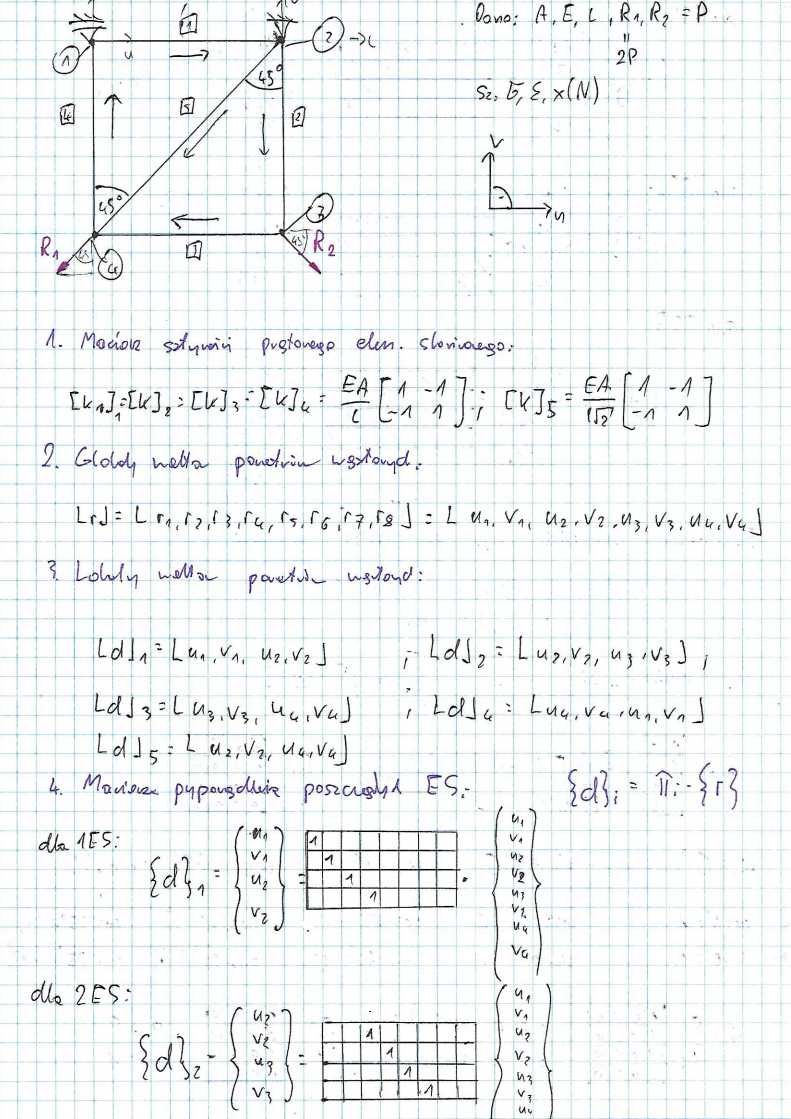 Dano: A, E, L, R₁, R₂ = P
"
2P
Sz. σ, ε, x(N)
1
1
2
→L
u
45°
4
5
2
V
u
45°
3
R₁
45
4
3
45°
R₂
1. Macierz sztywności prętowego elem. skończonego:
[k₁]₁ = [k]₂ = [k]₃ = [k]₄ = EA/L [1 -1; -1 1] ; [k]₅ = EA/L√2 [1 -1; -1 1]
2. Globalny wektor parametrów węzłowych:
⌊r⌋ = ⌊ r₁, r₂, r₃, r₄, r₅, r₆, r₇, r₈ ⌋ = ⌊ u₁, v₁, u₂, v₂, u₃, v₃, u₄, v₄ ⌋
3. Lokalny wektor parametrów węzłowych:
⌊d⌋₁ = ⌊u₁, v₁, u₂, v₂⌋ ; ⌊d⌋₂ = ⌊u₂, v₂, u₃, v₃⌋ ;
⌊d⌋₃ = ⌊u₃, v₃, u₄, v₄⌋ ; ⌊d⌋₄ = ⌊u₄, v₄, u₁, v₁⌋
⌊d⌋₅ = ⌊u₂, v₂, u₄, v₄⌋
4. Macierze przyporządkowania poszczególnych ES: {d}ᵢ = πᵢ · {r}
dla 1ES:
{d}₁ = {u₁ v₁ u₂ v₂} = [1 1 1 1] · {u₁ v₁ u₂ v₂ u₃ v₃ u₄ v₄}
dla 2ES:
{d}₂ = {u₂ v₂ u₃ v₃} = [1 1 1 1] {u₁ v₁ u₂ v₂ u₃ v₃ u₄